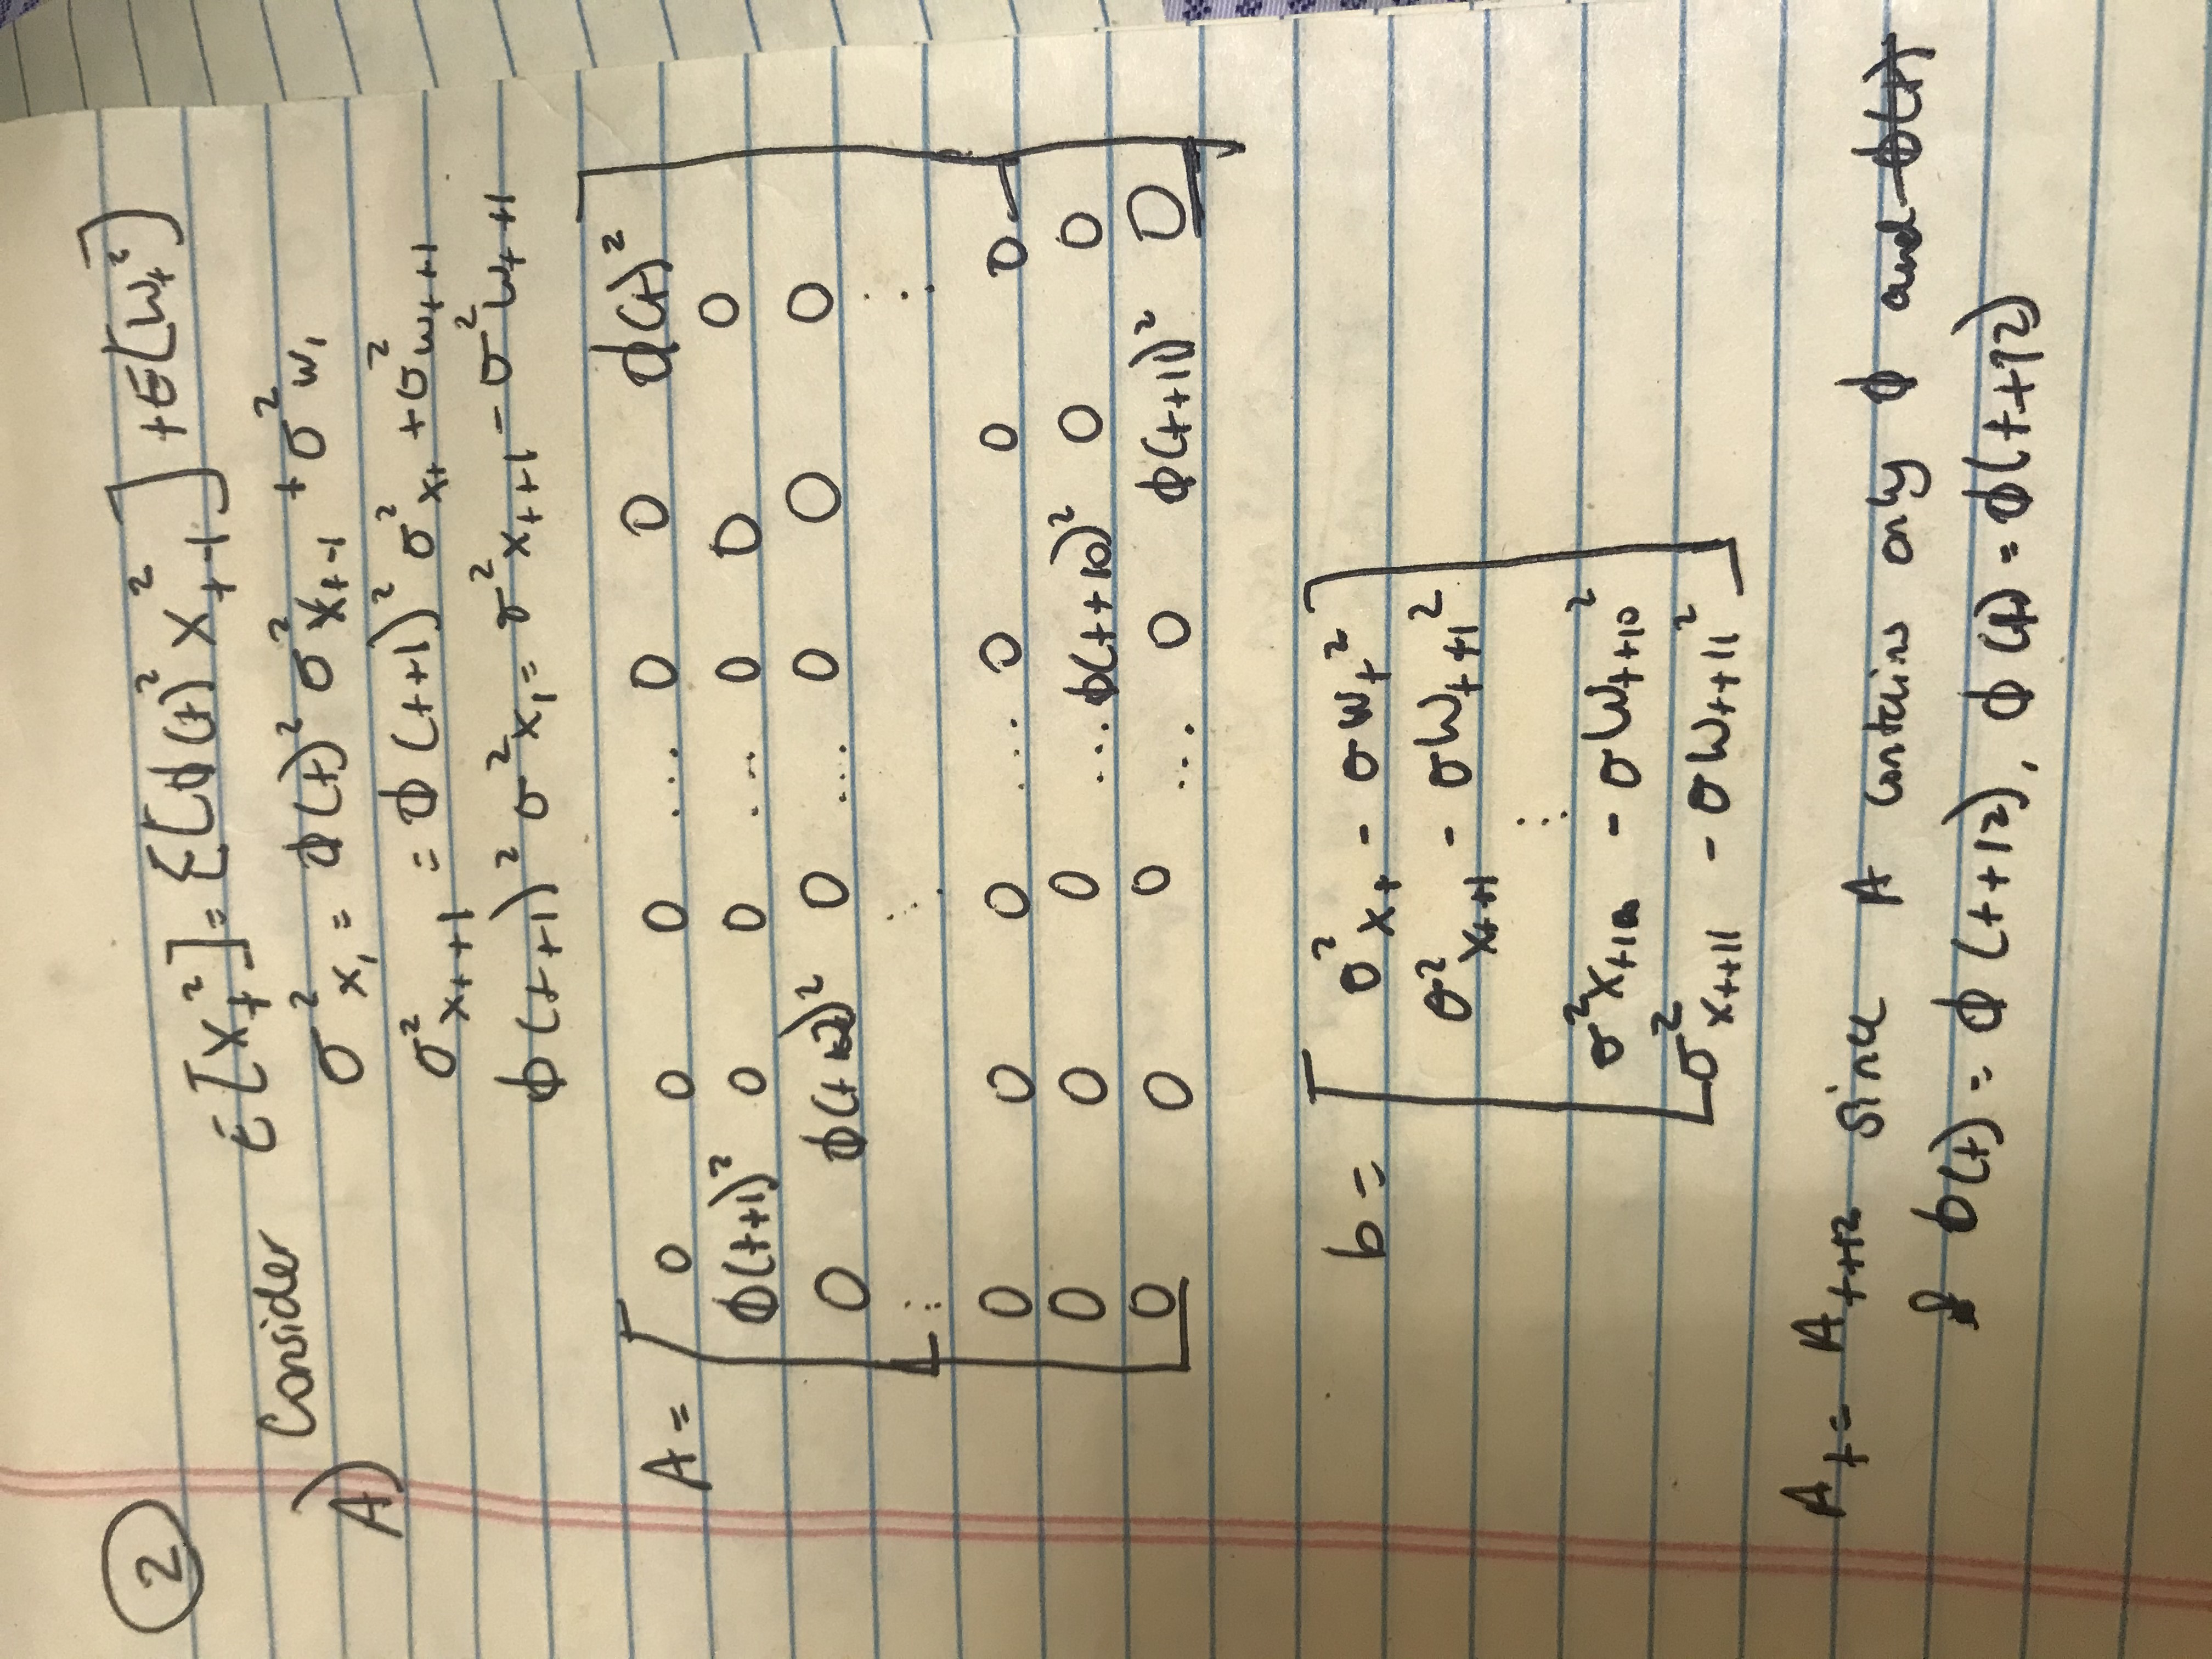 2
A) Consider E[X_t^2] = E[ϕ(t)^2 X_{t-1}^2] + E[W_t^2]
σ^2_{X_t} = ϕ(t)^2 σ^2_{X_{t-1}} + σ^2_{W_t}
σ^2_{X_{t+1}} = ϕ(t+1)^2 σ^2_{X_t} + σ^2_{W_{t+1}}
ϕ(t+1)^2 σ^2_{X_t} = σ^2_{X_{t+1}} - σ^2_{W_{t+1}}
A = [ 0 0 0 ... 0 0 ϕ(t)^2
ϕ(t+1)^2 0 0 ... 0 0 0
0 ϕ(t+2)^2 0 ... 0 0 0
⋮ ⋱ ⋮
0 0 0 ... 0 0 0
0 0 0 ... ϕ(t+10)^2 0 0
0 0 0 ... 0 ϕ(t+11)^2 0 ]
b = [ σ^2_{X_t} - σ_{W_t}^2
σ^2_{X_{t+1}} - σ_{W_{t+1}}^2
⋮
σ^2_{X_{t+10}} - σ_{W_{t+10}}^2
σ^2_{X_{t+11}} - σ_{W_{t+11}}^2 ]
A_t = A_{t+12} since A contains only ϕ and ϕ(t)
& σ(t) = ϕ(t+12), ϕ(t) = ϕ(t+12)